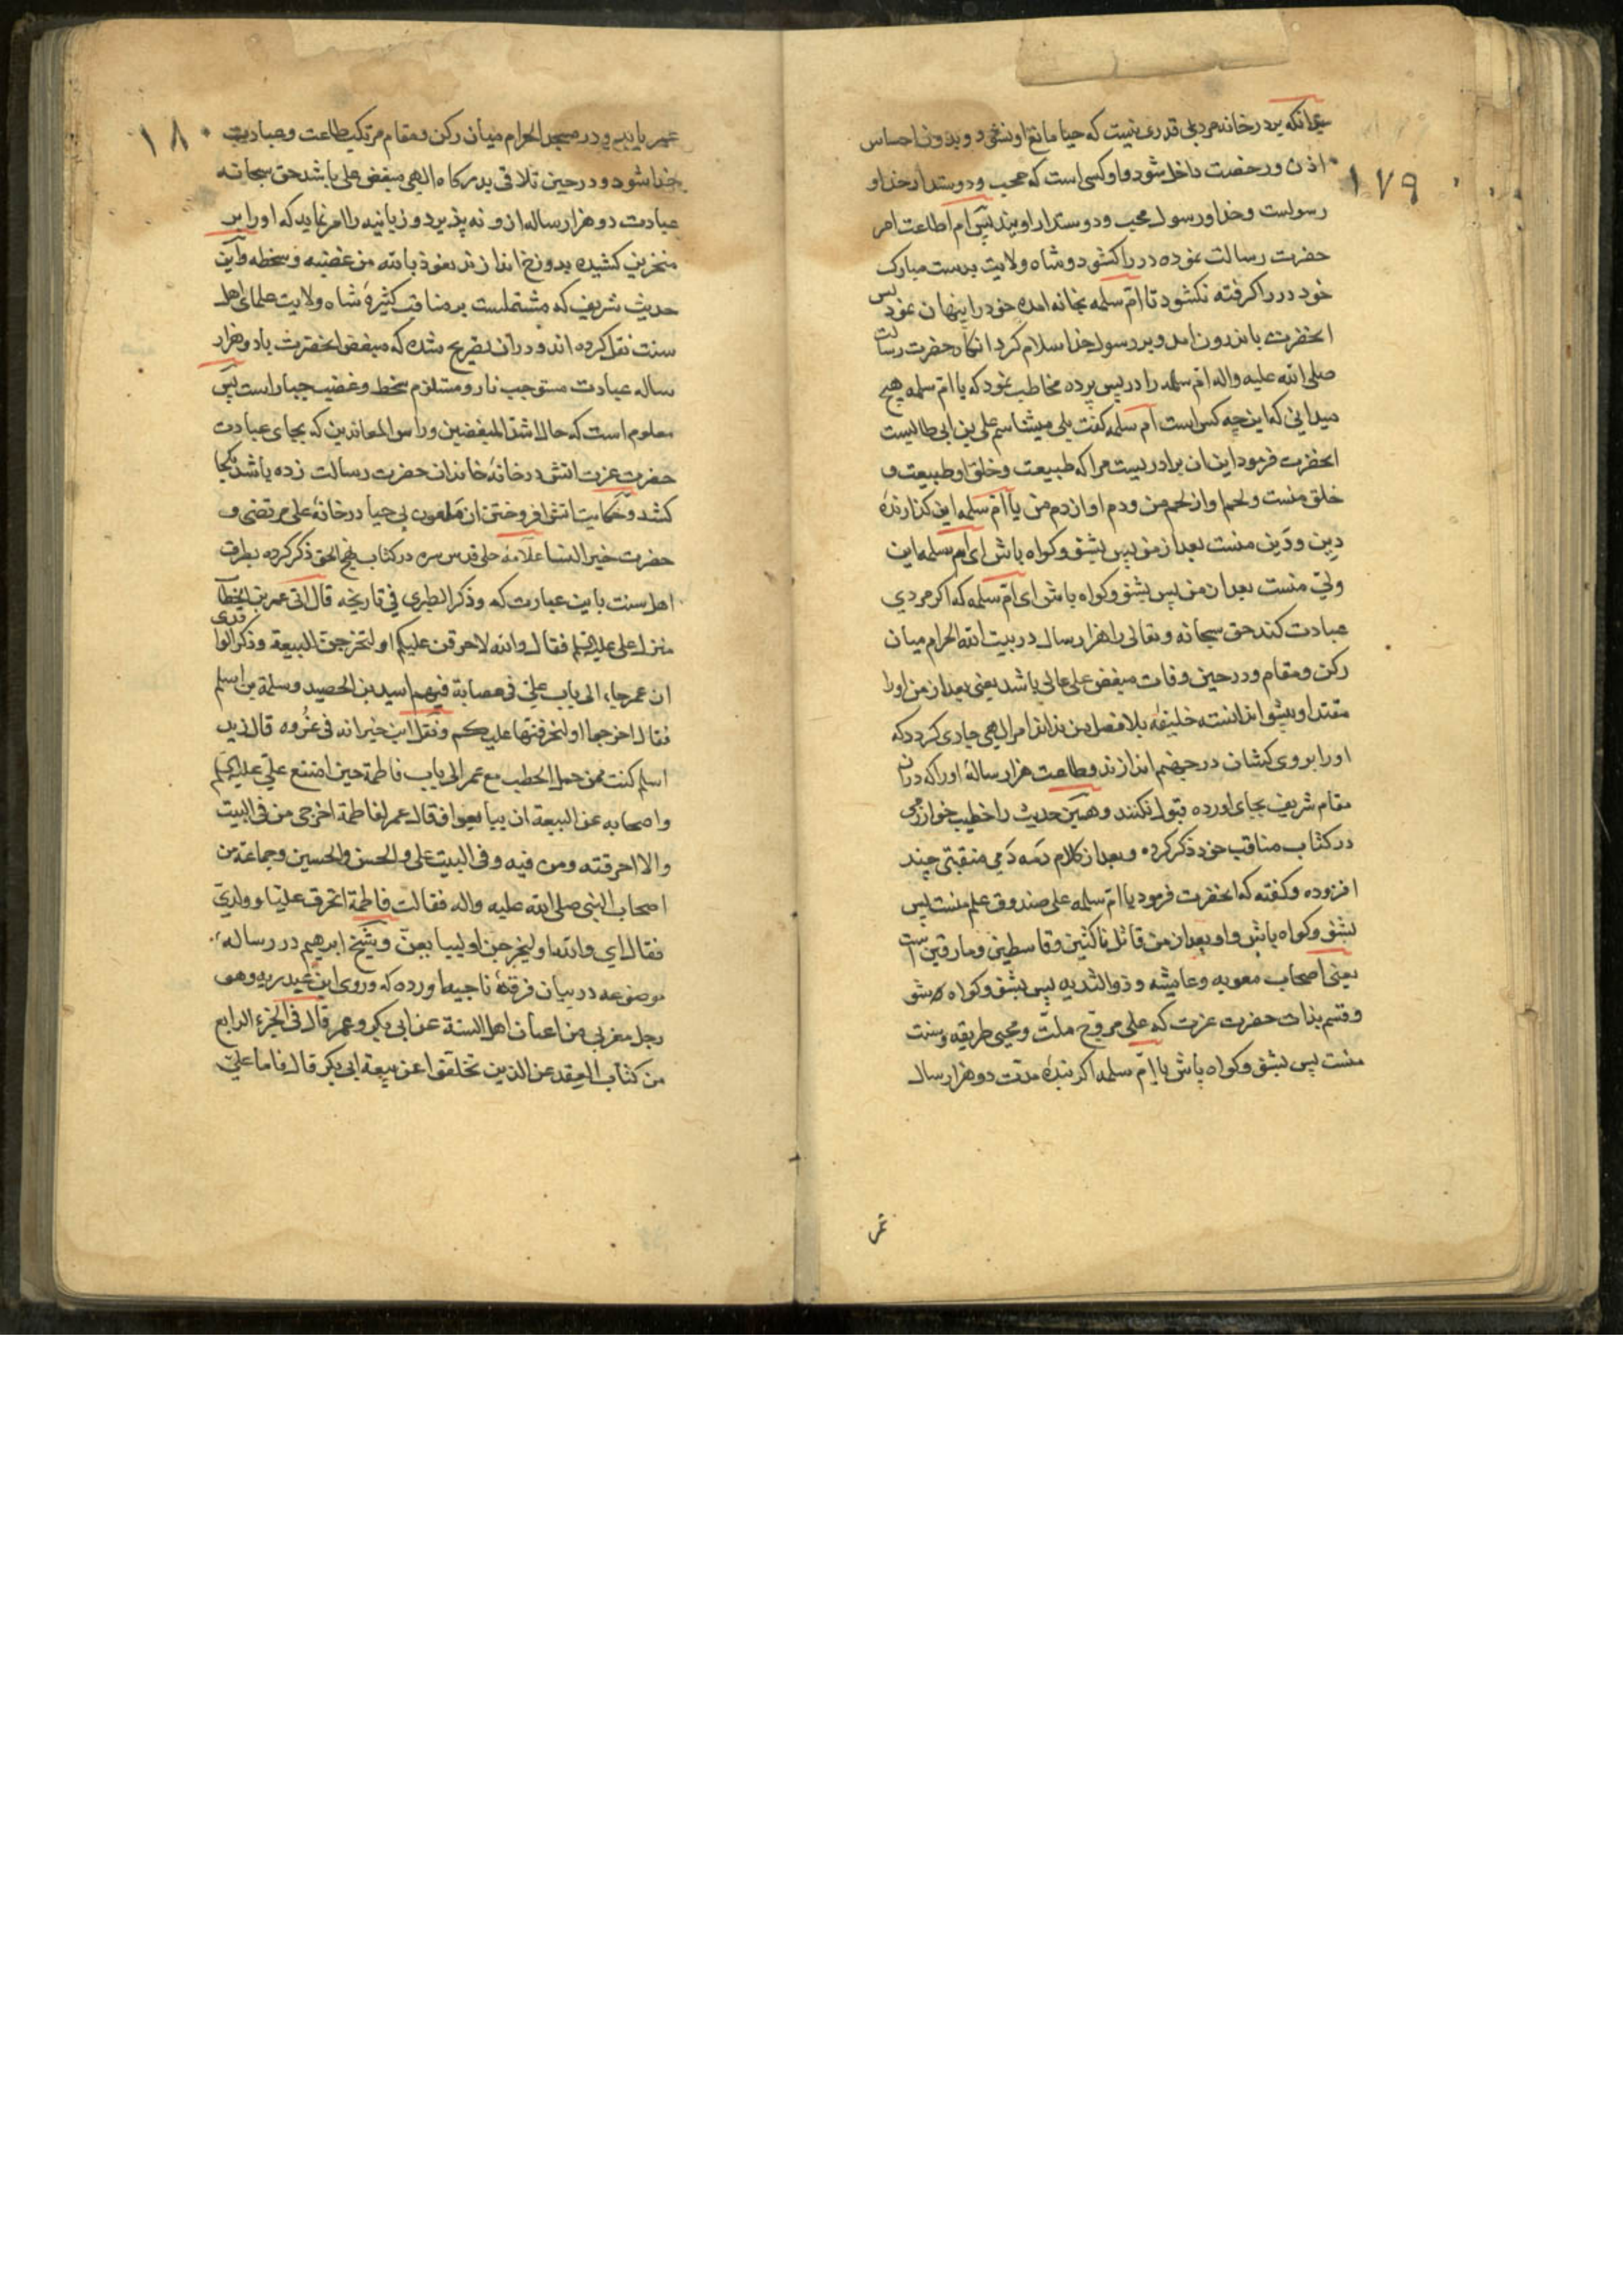 آنکه بر در خانه مردی قدری نیست که حیا مانع او نشود و بدون احساس
اذن و رخصت داخل شود و او کسی است که محب و دوستدار خدا و
۱۷۹
رسولست و خدا و رسول محب و دوستدار اویند پس ام اطاعت امر
حضرت رسالت نموده در را کشود و شاه ولایت بدست مبارک
خود در را کرفته نکشود تا ام سلمه بخانه امده خود را پنهان نمود پس
انحضرت باندرون امد و بر رسول خدا سلام کرد انکاه حضرت رسالت
صلی الله علیه واله ام سلمه را در پس پرده مخاطب نمود که یا ام سلمه هیچ
میدانی که این چه کس است ام سلمه کفت بلی میشناسم علی بن ابی طالبست
انحضرت فرمود این ان برادریست مرا که طبیعت و خلق او طبیعت و
خلق منست و لحم او از لحم من و دم او از دم من یا ام سلمه این کذارندهٔ
دین و دَین منست بعد از من پس بشنو و کواه باش ای ام سلمه این
ولی منست بعد از من پس بشنو و کواه باش ای ام سلمه که اکر مردی
عبادت کند حق سبحانه و تعالی را هزار سال در بیت الله الحرام میان
رکن و مقام و در حین وفات مبغض علی عالی باشد یعنی بعد از من او را
مقتدا و پیشوا ندانسته خلیفه بلا فصل من نداند امر الهی جاری کردد که
او را بر وی کشان در جهنم اندازند و طاعت هزار سالهٔ او را که دران
مقام شریف بجای اورده قبول نکنند و همین حدیث را خطیب خوارزمی
در کتاب مناقب خود ذکر کرده و بعد از کلام دمه دمی منقبتی چند
افزوده و کفته که انحضرت فرمود یا ام سلمه علی صندوق علم منست پس
بشنو و کواه باش و او بعد از من قاتل ناکثین و قاسطین و مارقین است
یعنی اصحاب معویه و عایشه و ذو الثدیه پس بشنو و کواه شو
و قسم بذات حضرت عزت که علی مروج ملت و محیی طریقه و سنت
منست پس بشنو و کواه باش یا ام سلمه اکر بندهٔ مدت دو هزار سال
عمر
عمر یابد و در مسجد الحرام میان رکن و مقام مرتکب طاعت و عبادت
۱۸۰
خدا شود و در حین تلاقی بدرکاه الهی مبغض علی باشد حق سبحانه
عبادت دو هزار ساله از و نه پذیرد و زبانیه را امر نماید که او را بر
منخرین کشیده بدوزخ اندازند نعوذ بالله من غضبه و سخطه و این
حدیث شریف که مشتملست بر مناقب کثیرهٔ شاه ولایت علمای اهل
سنت نقل کرده اند و دران تصریح شده که مبغض انحضرت با دو هزار
ساله عبادت مستوجب نار و مستلزم سخط و غضب جبار است پس
معلوم است که حال اشد المبغضین و راس المعاندین که بجای عبادت
حضرت عزت اتش در خانهٔ خاندان حضرت رسالت زده باشد بکجا
کشد و حکایت اتش افروختن ان ملعون بی حیا در خانهٔ علی مرتضی و
حضرت خیر النسا علامهٔ حلی قدس سره در کتاب نهج الحق ذکر کرده بطرق
اهل سنت باین عبارت که وذکر الطبری فی تاریخه قال اتی عمر بن الخطاب
منزل علی علیه السلم فقال والله لاحرقن علیکم او لتخرجن للبیعة وذکر الواقدی
ان عمر جاء الی باب علی فی عصابة فیهم اسید بن الحصید وسلمة بن اسلم
فقال اخرجها او لنحرقنها علیکم ونقل ابن خیرانه فی غُروه قال زید
اسلم کنت ممن حمل الحطب مع عمر الی باب فاطمة حین امتنع علی علیه السلم
واصحابه عن البیعة ان یبایعوا فقال عمر لفاطمة اخرجی من فی البیت
والا احرقته ومن فیه وفی البیت علی والحسن والحسین وجماعة من
اصحاب النبی صلی الله علیه واله فقالت فاطمة اتحرق علیا وولدی
فقال ای والله او لیخرجن او لیبایعن و شیخ ابرهیم در رساله
موضوعه در بیان فرقهٔ ناجیه اورده که وروی ابن عبد ربه وهو
رجل مغربی من اعیان اهل السنة عن ابی بکر وعمر قال فی الجزء الرابع
من کتاب العقد عن الذین تخلفوا عن بیعة ابی بکر قال فاما علی